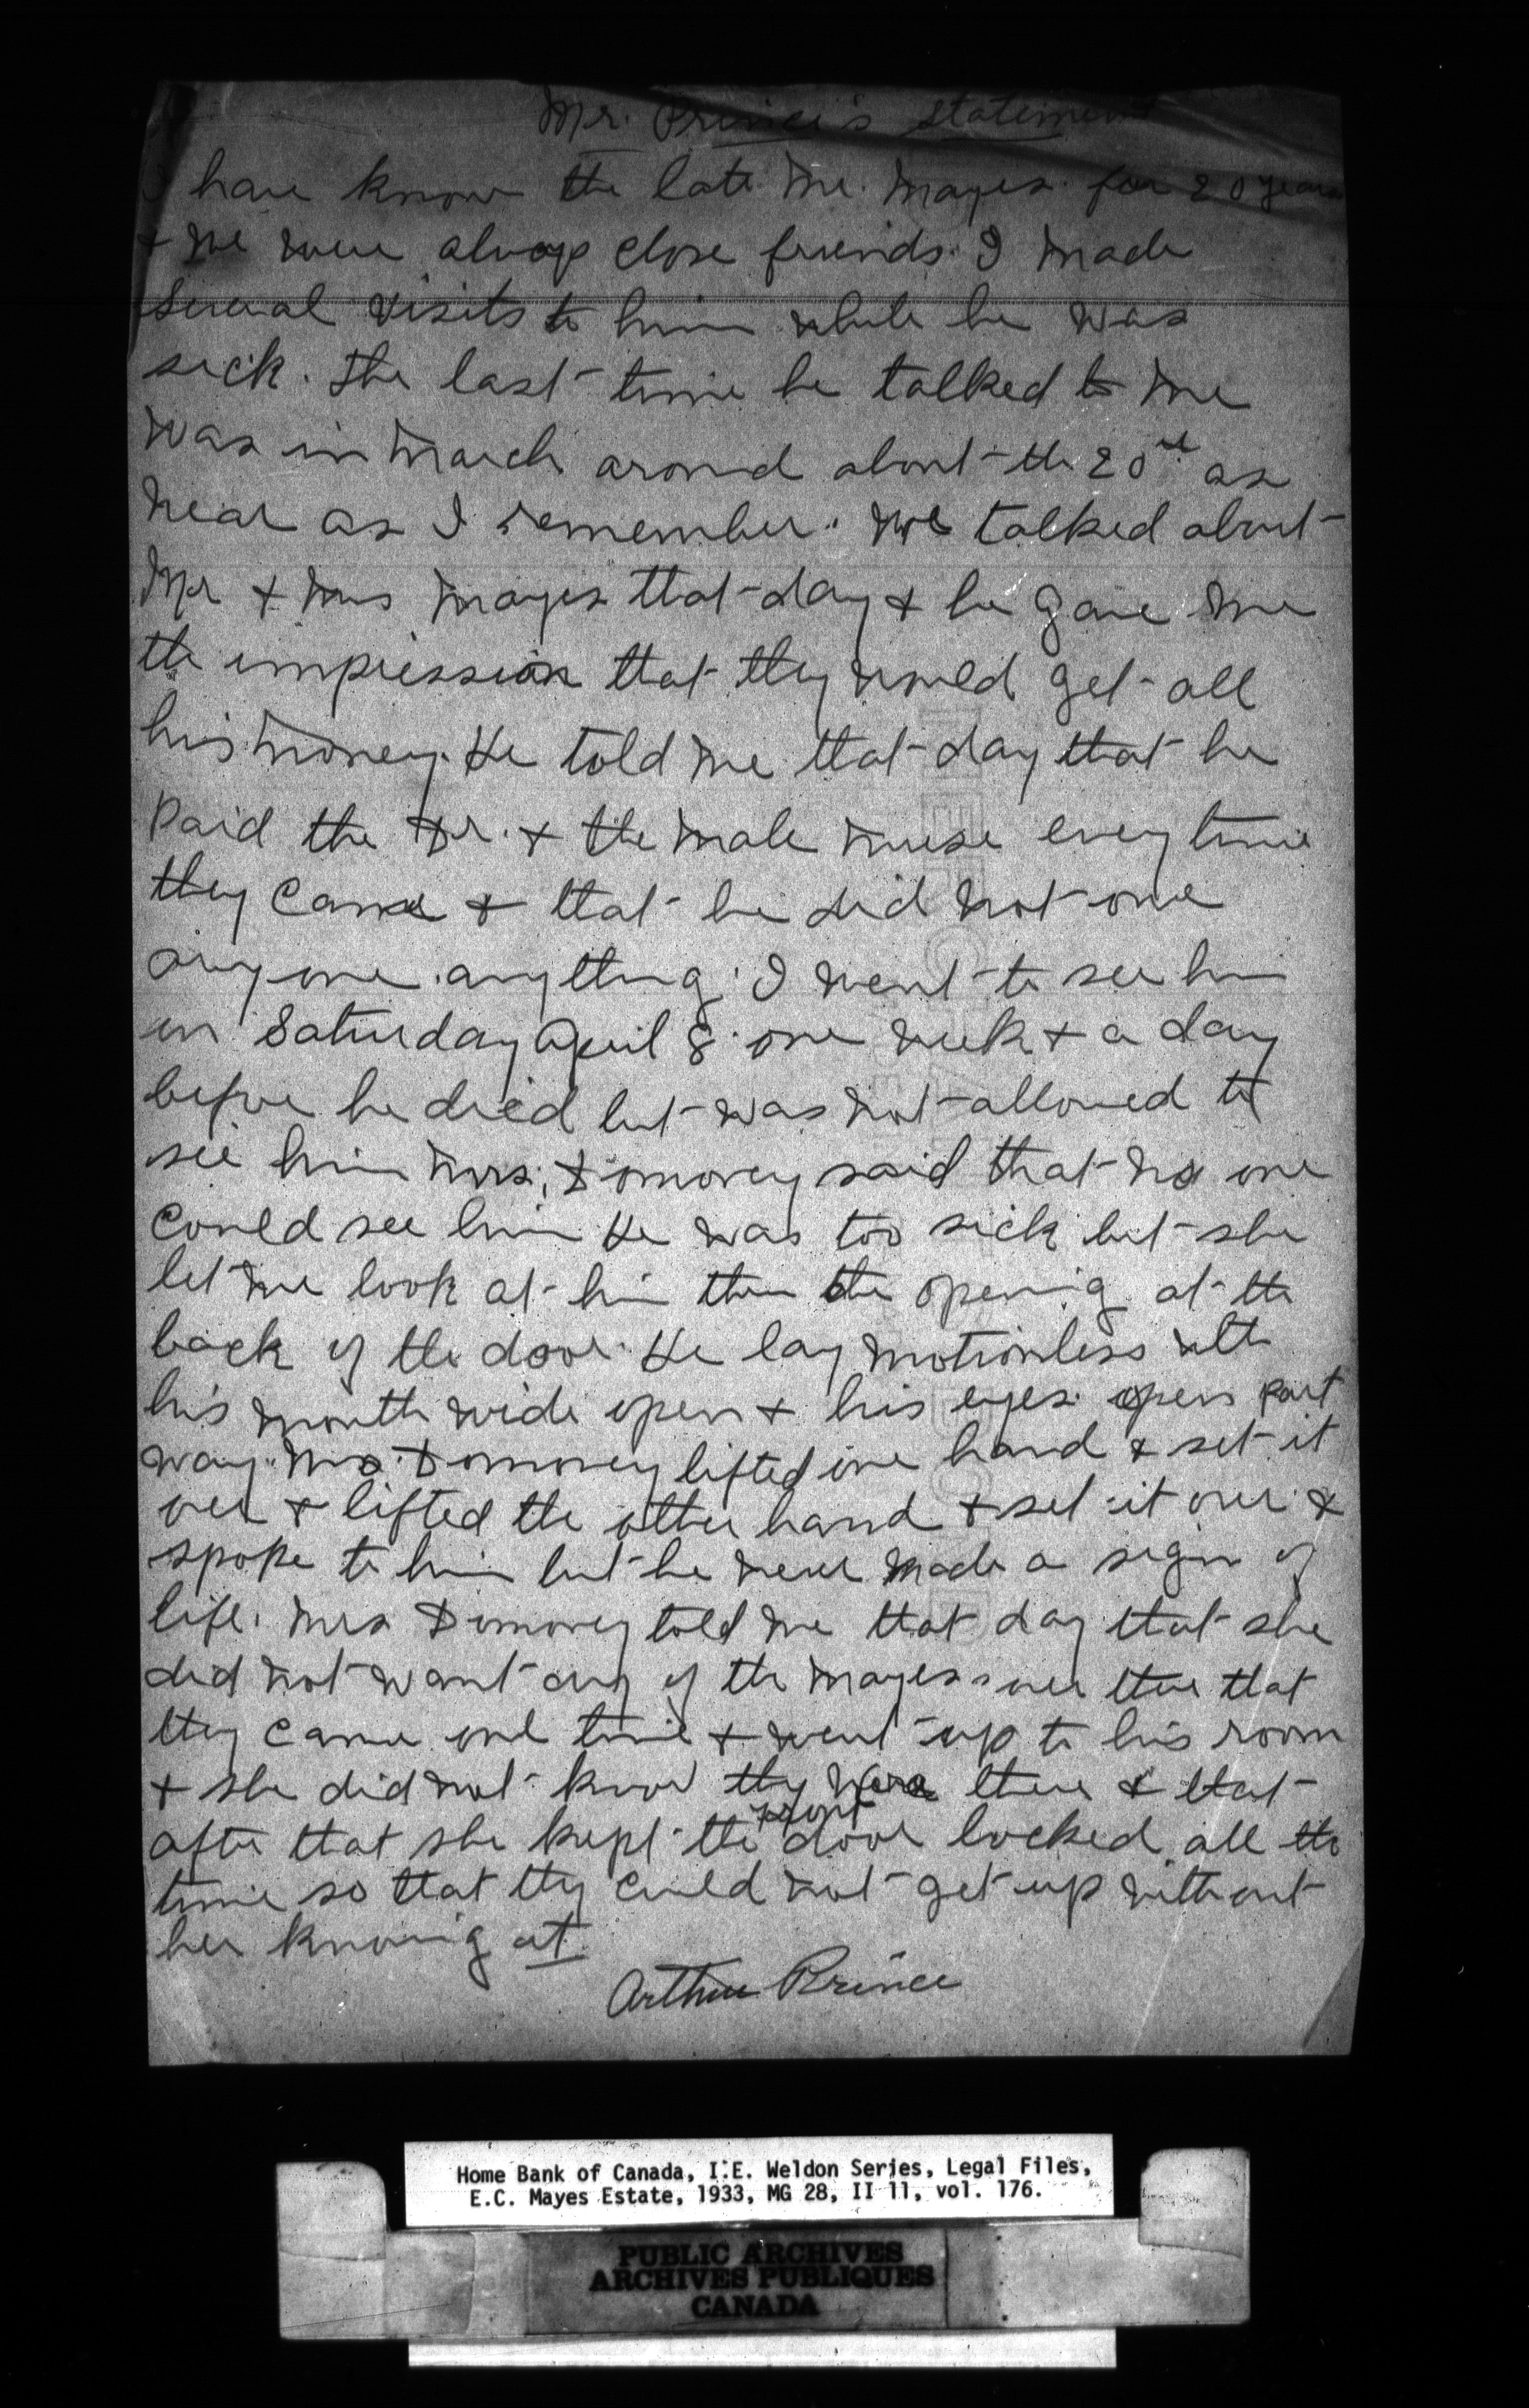 Mr. Prince's statement
I have know the late Mr. Mayes for 20 years
& we were always close friends. I made
several visits to him while he was
sick. The last time he talked to me
was in March around about the 20th as
near as I remember. We talked about
Mr & Mrs Mayes that day & he gave me
the impression that they would get all
his money. He told me that day that he
paid the Dr. & the male nurse every time
they came & that he did not owe
any one anything. I went to see him
on Saturday April 8 one week & a day
before he died but was not allowed to
see him Mrs. Domoney said that no one
could see him He was too sick but she
let me look at him thru the opening at the
back of the door. He lay motionless with
his mouth wide open & his eyes open part
way. Mrs. Domoney lifted one hand & set it
over & lifted the other hand & set it over &
spoke to him but he never made a sign of
life. Mrs Domoney told me that day that she
did not want any of the Mayes over there that
they came one time & went up to his room
& she did not know they were there & that
after that she kept the front door locked all the
time so that they could not get up without
her knowing it.
Arthur Prince
Home Bank of Canada, I.E. Weldon Series, Legal Files,
E.C. Mayes Estate, 1933, MG 28, II 11, vol. 176.
PUBLIC ARCHIVES
ARCHIVES PUBLIQUES
CANADA